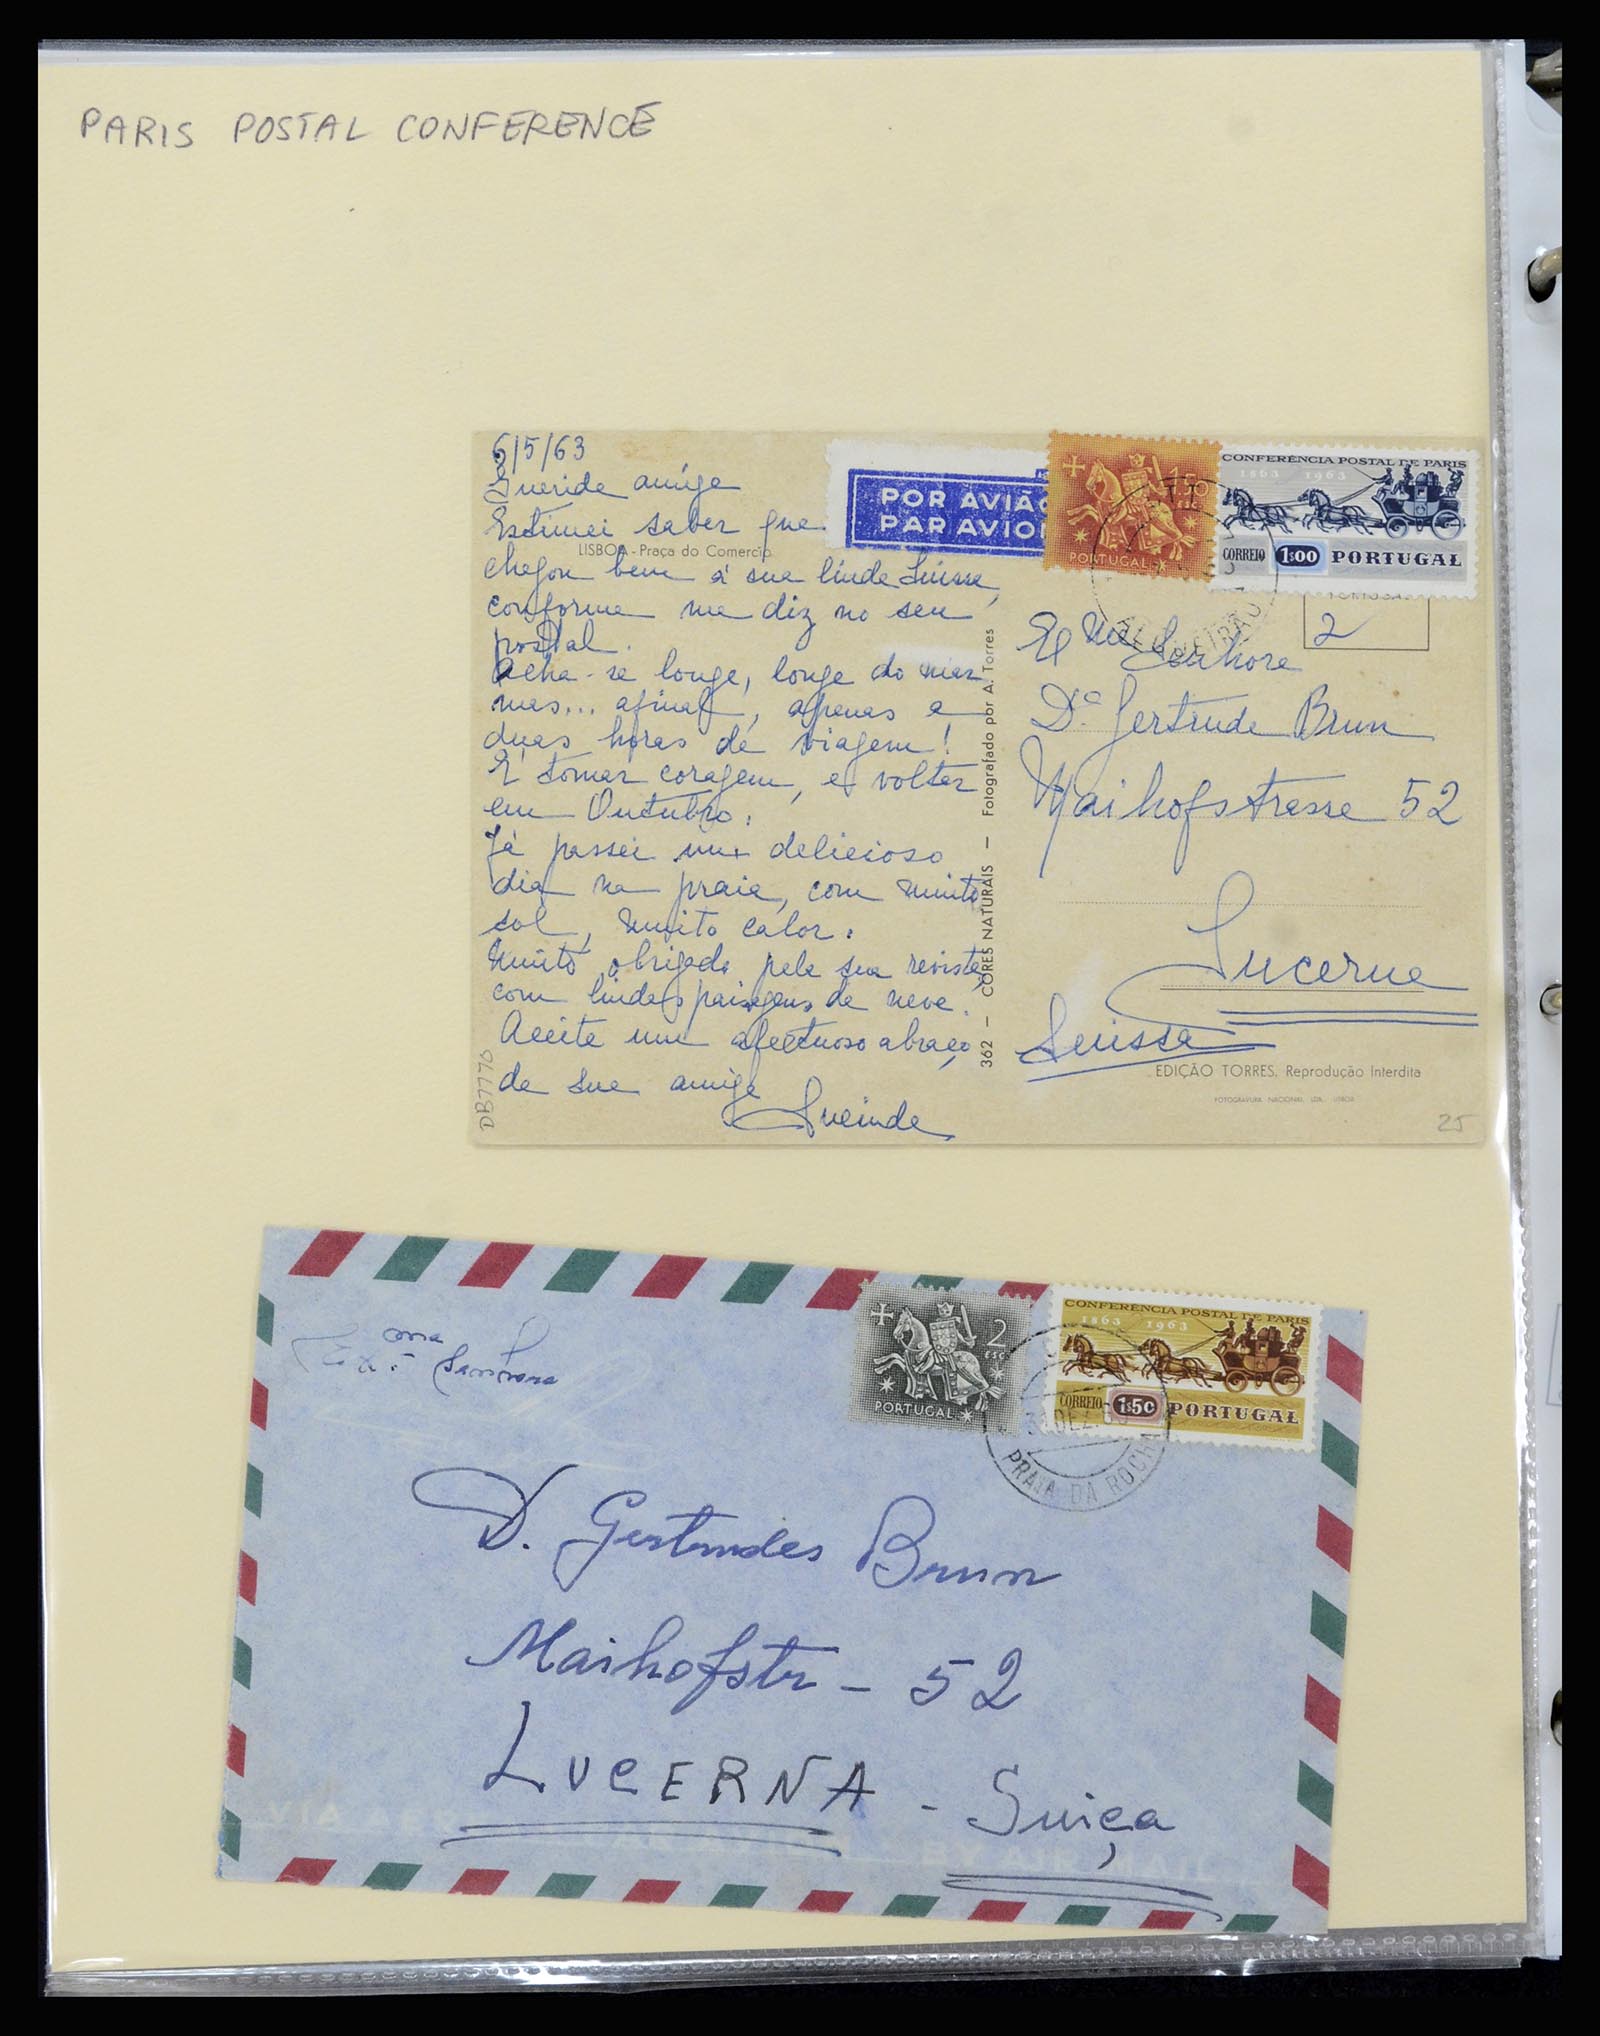 PARIS POSTAL CONFERENCE
6/5/63
Queride amige
Estimei saber que
LISBOA - Praça do Comercio
chegou bem á sua linde Suissa,
conforme me diz no seu
postal.
Acha-se longe, longe do mar
mas... afinal, apenas a
duas horas de viagem!
É tomar coragem, e volter
em Outubro.
Já passei um delicioso
dia na praia, com muito
sol, muito calor.
Muito obrigada pela sua revista,
com lindas paisagens de neve.
Aceite um afectuoso abraço,
de sua amiga
DB7770
362 — CORES NATURAIS — Fotografado por A. Torres
POR AVIÃO
PAR AVION
1$50
PORTUGAL
CONFERÊNCIA POSTAL DE PARIS
1863 1963
CORREIO 1$00 PORTUGAL
2
Exma Senhora
D.ª Gertrude Brun
Maihofstrasse 52
Lucerne
Suissa
EDIÇÃO TORRES. Reprodução Interdita
FOTOGRAVURA NACIONAL, LDA. LISBOA
25
Ex.ma Senhora
2 ESC.
PORTUGAL
CONFERÊNCIA POSTAL DE PARIS
1863 1963
CORREIO 1$50 PORTUGAL
PRAIA DA ROCHA
D. Gertrudes Brun
Maihofstr - 52
LUCERNA - Suiça
VIA AEREA PAR AVION BY AIR MAIL